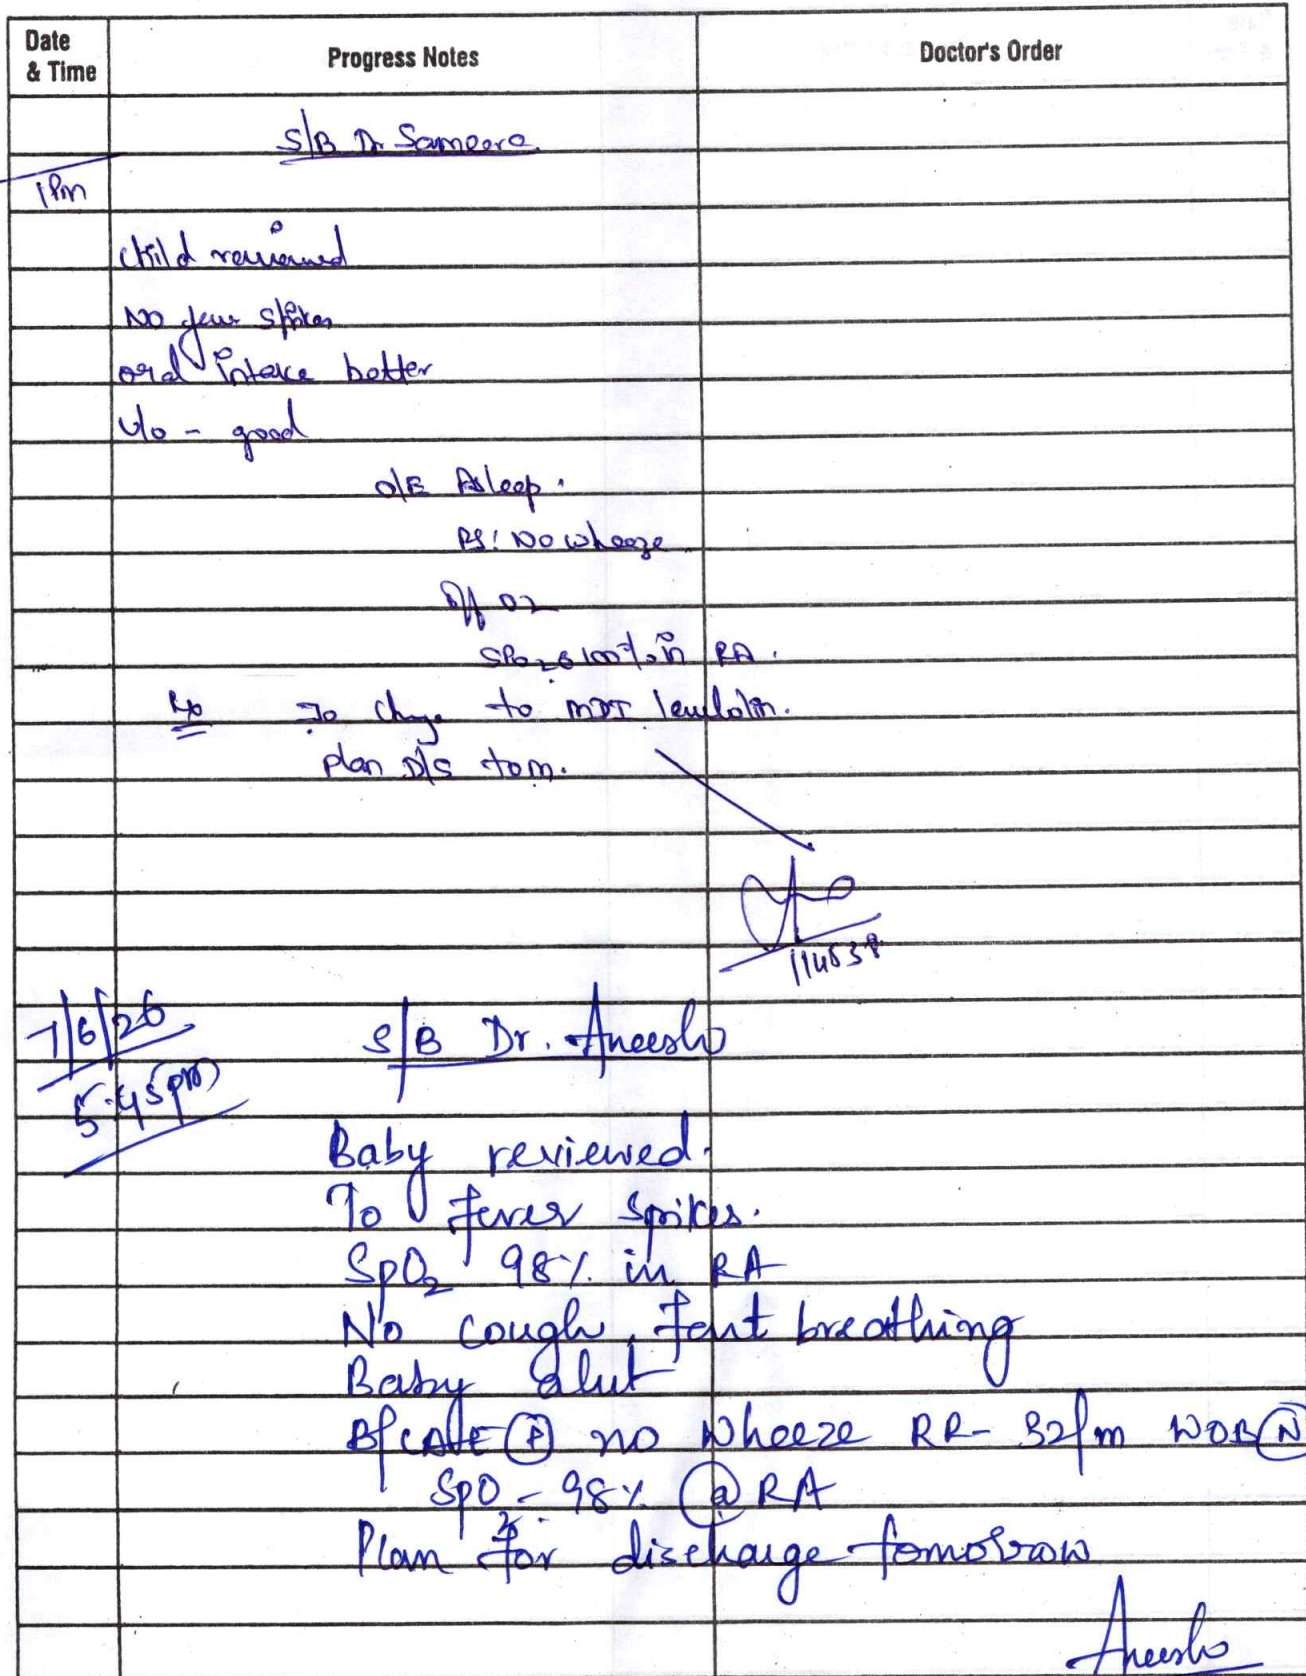 Date & Time Progress Notes Doctor's Order
S/B Dr Sameera
1 Pm
child reviewed
No fever spikes
oral intake better
U/o - good
O/E Asleep.
RS: No wheeze
Off O2
SPO2 100% in RA.
To change to MDI levolin.
plan D/S tom.
7/6/26 S/B Dr. Aneesha
5.45pm
Baby reviewed.
No fever spikes.
SpO2 98% in RA
No cough, fast breathing
Baby alert
B/L AE (P) no wheeze RR- 32/m WOB (N)
SpO2 - 98% @ RA
Plan for discharge tomorrow
Aneesha